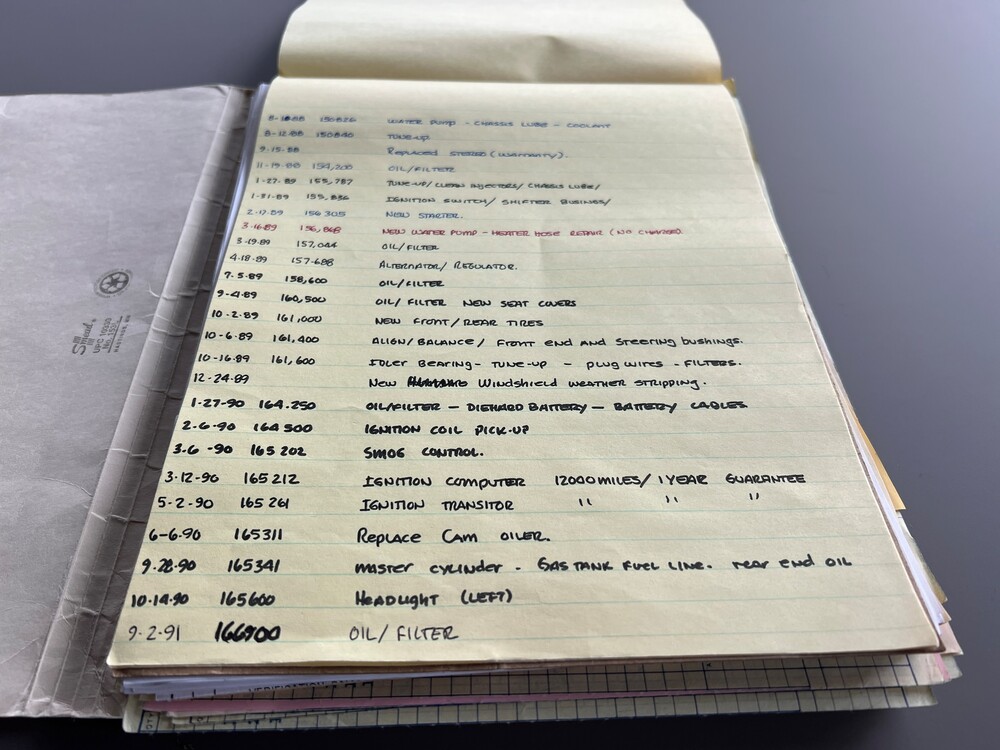 Smead's
UPC 10330
HASTINGS, MN
8-10-88 150826 WATER PUMP - CHASSIS LUBE - COOLANT
8-12-88 150840 TUNE-UP
9-15-88 Replaced STEREO (WARRANTY).
11-19-88 154,200 OIL/FILTER
1-27-89 155,787 TUNE-UP/CLEAN INJECTORS/CHASSIS LUBE/
1-31-89 155,836 IGNITION SWITCH/ SHIFTER BUSHING/
2-17-89 156305 NEW STARTER.
3-16-89 156,868 NEW WATER PUMP - HEATER HOSE REPAIR (NO CHARGE).
3-19-89 157,044 OIL/FILTER
4-18-89 157-688 ALTERNATOR/ REGULATOR.
7-5-89 158,600 OIL/FILTER
9-4-89 160,500 OIL/ FILTER NEW SEAT COVERS
10-2-89 161,000 NEW FRONT/REAR TIRES
10-6-89 161,400 ALIGN/BALANCE/ FRONT END AND STEERING bushings.
10-16-89 161,600 IDLER BEARING- TUNE-UP - plug wires - FILTERS.
12-24-89 New Windshield weather stripping.
1-27-90 164.250 OIL/FILTER - DIEHARD BATTERY - BATTERY CABLES
2-6-90 164500 IGNITION COIL PICK-UP
3-6-90 165202 SMOG CONTROL.
3-12-90 165212 IGNITION COMPUTER 12000 MILES/ 1 YEAR GUARANTEE
5-2-90 165261 IGNITION TRANSITOR " " "
6-6-90 165311 Replace Cam OILER.
9-28-90 165341 master cylinder - GAS TANK FUEL LINE. rear end OIL
10-14-90 165600 HEADLIGHT (LEFT)
9-2-91 166900 OIL/ FILTER